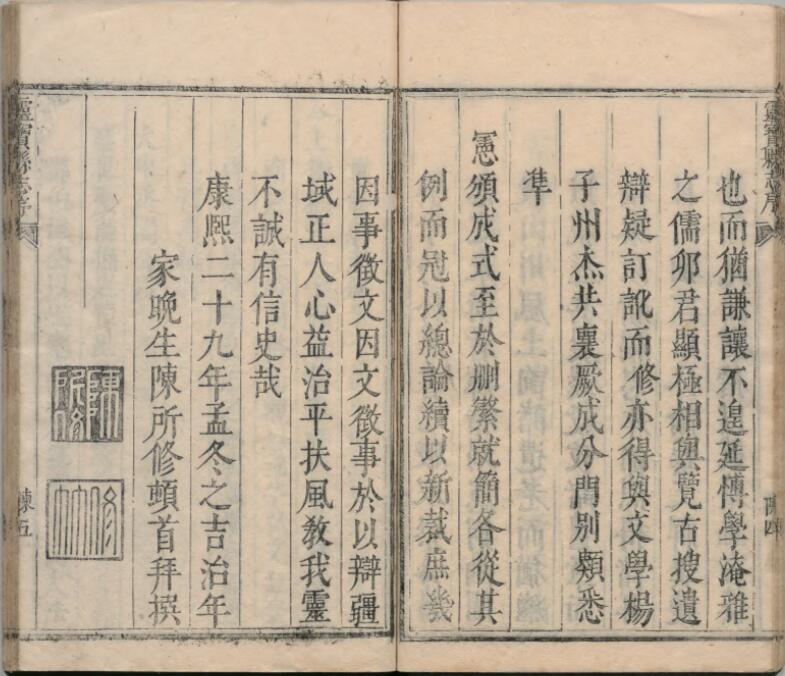 靈寶縣志序
也而猶謙讓不遑延愽學淹雅
之儒卯君顯極相與覽古搜遺
辯疑訂訛而修亦得與文學楊
子州杰共襄厥成分門别類悉
凖
憲頒成式至於刪繁就簡各從其
例而冠以總論續以新裁庶幾
陳四
因事徵文因文徵事於以辯疆
域正人心益治平扶風敎我靈
不誠有信史哉
康熙二十九年孟冬之吉治年
家晩生陳所修頓首拜撰
陳所修印
靈寶縣志序
陳五